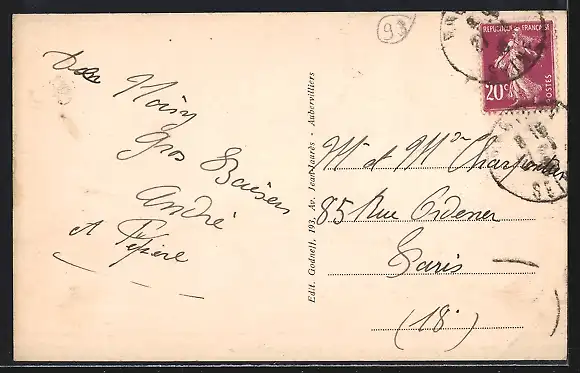 De Noisy
Gros Baisers
André
et
9
Edit. Godneff, 193, Av. Jean-Jaurès - Aubervilliers
REPUBLIQUE FRANÇAISE
20c
POSTES
Mr et Mme Charpentier
85 Rue Ordener
Paris
(18e)